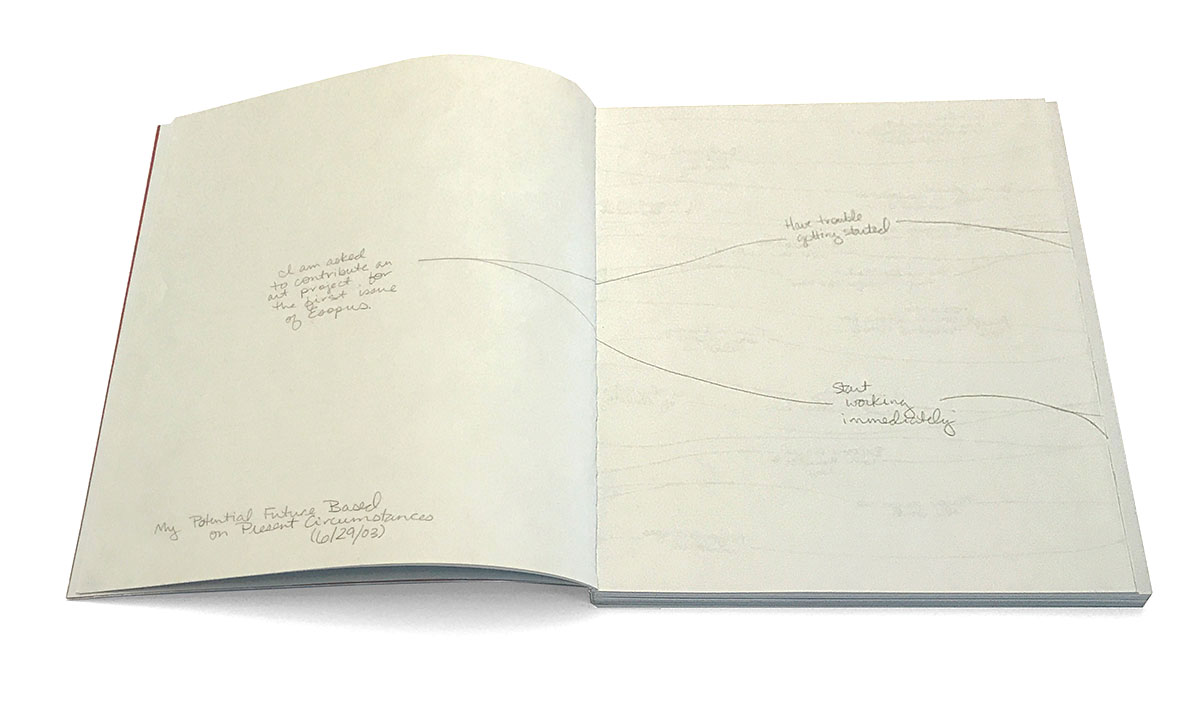 I am asked
to contribute an
art project for
the first issue
of Esopus.
My Potential Future Based
on Present Circumstances
(6/29/03)
Have trouble
getting started
Start
working
immediately